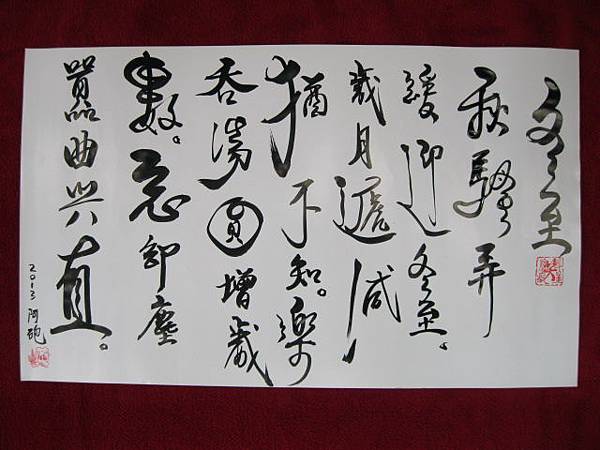 冬至
秋騁弄
緩迎冬至。
歲月遞減
猶不知。樂
吞湯圓增歲
數。忘卻塵
囂曲與直。
2013 阿砲